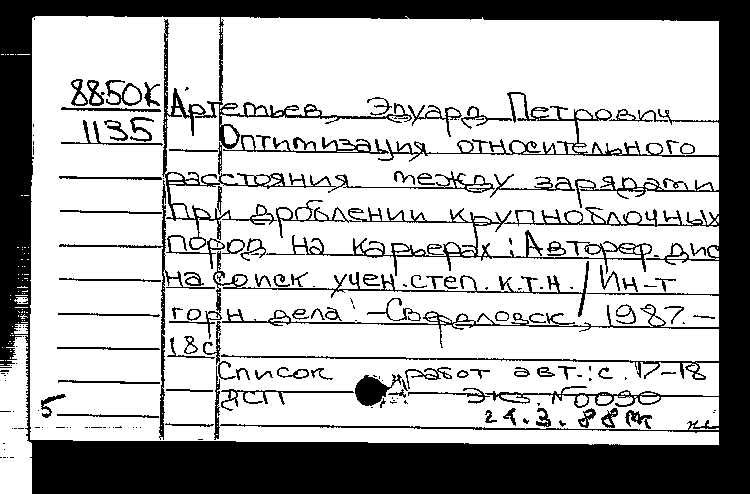 88-50К Артемьев, Эдуард Петрович
1135 Оптимизация относительного
расстояния между зарядами
при дроблении крупноблочных
пород на карьерах: Автореф. дис
на соиск. учен. степ. к.т.н. / Ин-т
горн. дела. - Свердловск, 1987. -
18с
Список работ авт.: с. 17-18
ДСП Экз. №0090
5
24.3.88